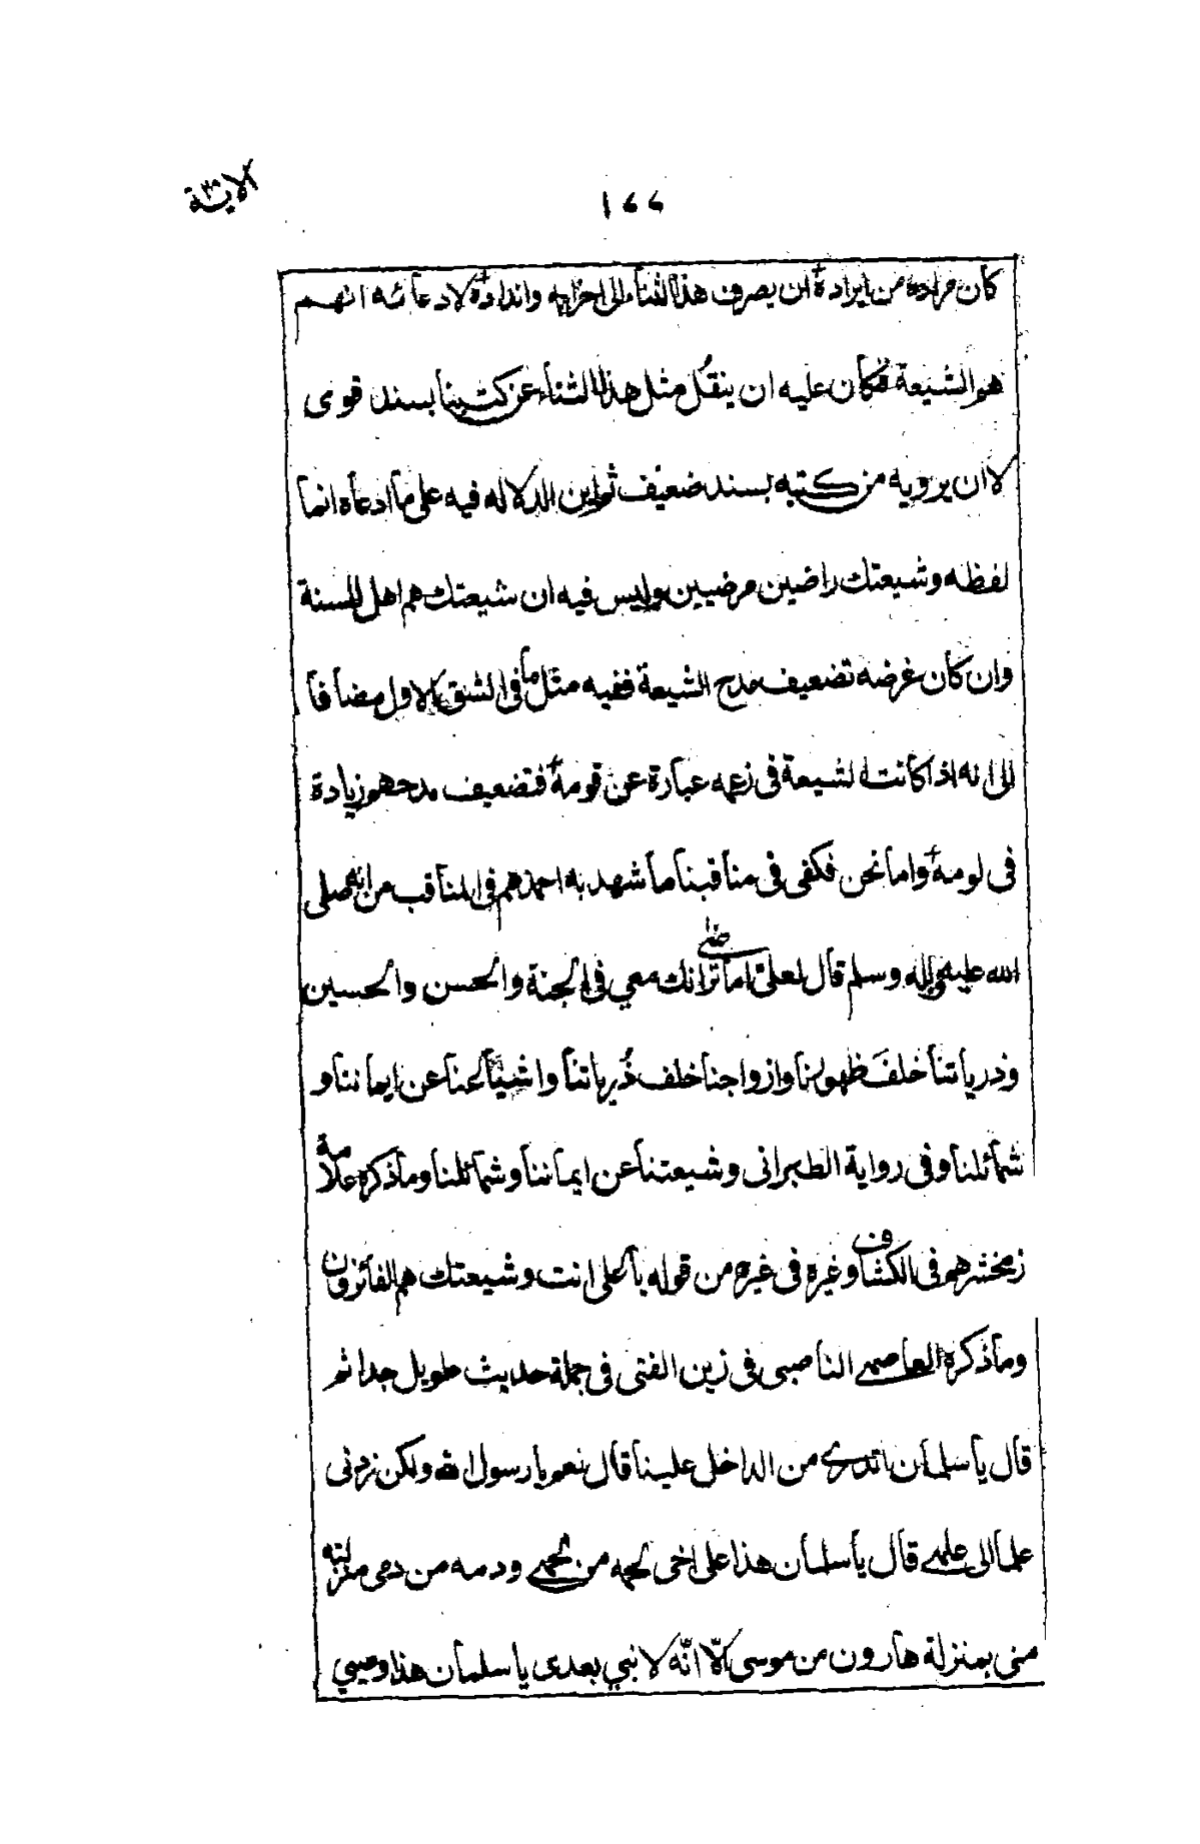 الآية ٣
١٧٧
كان مراده من ايراده ان يصرف هذا الثناء الى احزابه وانداده لادعائه انهم
هم الشيعة فكان عليه ان ينقل مثل هذا الثناء عن كتبنا بسند قوى
لا ان يرويه من كتبه بسند ضعيف ثم اين الدلاله فيه على ما ادعاه انما
لفظه وشيعتك راضين مرضيين وليس فيه ان شيعتك هم اهل السنة
وان كان غرضه تضعيف مدح الشيعة ففيه مثل ما فى الشق الاول مضافا
الى انه اذا كانت الشيعة فى زعمه عبارة عن قومه فتضعيف مدحهم زيادة
فى لومه واما نحن فكفى فى مناقبنا ما شهد به احمدهم فى المناقب من انه صلى
الله عليه واله وسلم قال لعلى اما ترضى انك معي فى الجنة والحسن والحسين
وذرياتنا خلف ظهورنا وازواجنا خلف ذُرياتنا واشياعنا عن ايماننا و
شمائلنا وفى رواية الطبرانى وشيعتنا عن ايماننا وشمائلنا وما ذكره علامة
زمخشرهم فى الكشاف وغيره فى غيره من قوله يا على انت وشيعتك هم الفائزون
وما ذكره العاصمى الناصبى فى زين الفتى فى جملة حديث طويل جدا ثم
قال يا سلمان اتدرى من الداخل علينا قال نعم يا رسول الله ولكن زدنى
علما الى علمى قال يا سلمان هذا على اخى لحمه من لحمى ودمه من دمى منزلته
منى بمنزلة هارون من موسى الّا انّه لا نبي بعدى يا سلمان هذا وصيي